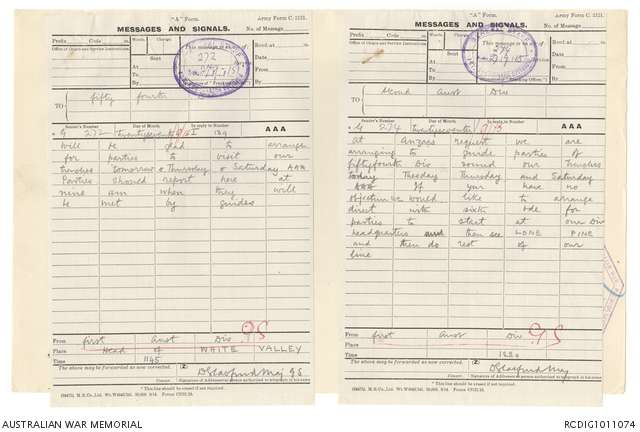 "A" Form.
Army Form C. 2121.
MESSAGES AND SIGNALS.
No. of Message
Prefix Code m.
Words.
Charge.
Office of Origin and Service Instructions.
Sent
At m.
To
By
This message is on a/c of:
272
Recd. at m.
Date
From
By
TO
fifty fourth Div
Sender's Number
In reply to Number
AAA
G 272 Twentyseventh
will be glad to arrange
for parties to visit our
trenches tomorrow & Thursday & Saturday AAA
Parties should report here at
nine am when they will
be met by guides
From first Aust Div
GS
Place Head of WHITE VALLEY
Time 1145
The above may be forwarded as now corrected. (Z)
Censor.
Signature of Addressor or person authorised to telegraph in his name
* This line should be erased if not required.
"A" Form.
Army Form C. 2121.
MESSAGES AND SIGNALS.
No. of Message
Prefix Code m.
Words.
Charge.
Office of Origin and Service Instructions.
Sent
At m.
To
By
This message is on a/c of:
274
Recd. at m.
Date
From
By
TO
second Aust Div
Sender's Number
In reply to Number
AAA
G 274 Twentyseventh
At Anzacs request we are
arranging to guide parties of
fiftyfourth Div round our trenches
today Tuesday Thursday and Saturday
AAA If you have no
objection we would like to arrange
direct with sixth bde for
parties to start at our Div
headquarters and then see LONE PINE
and then do rest of our
line
From first Aust Div
GS
Place
Time 1220
The above may be forwarded as now corrected. (Z)
Censor.
Signature of Addressor or person authorised to telegraph in his name
* This line should be erased if not required.
AUSTRALIAN WAR MEMORIAL
RCDIG1011074